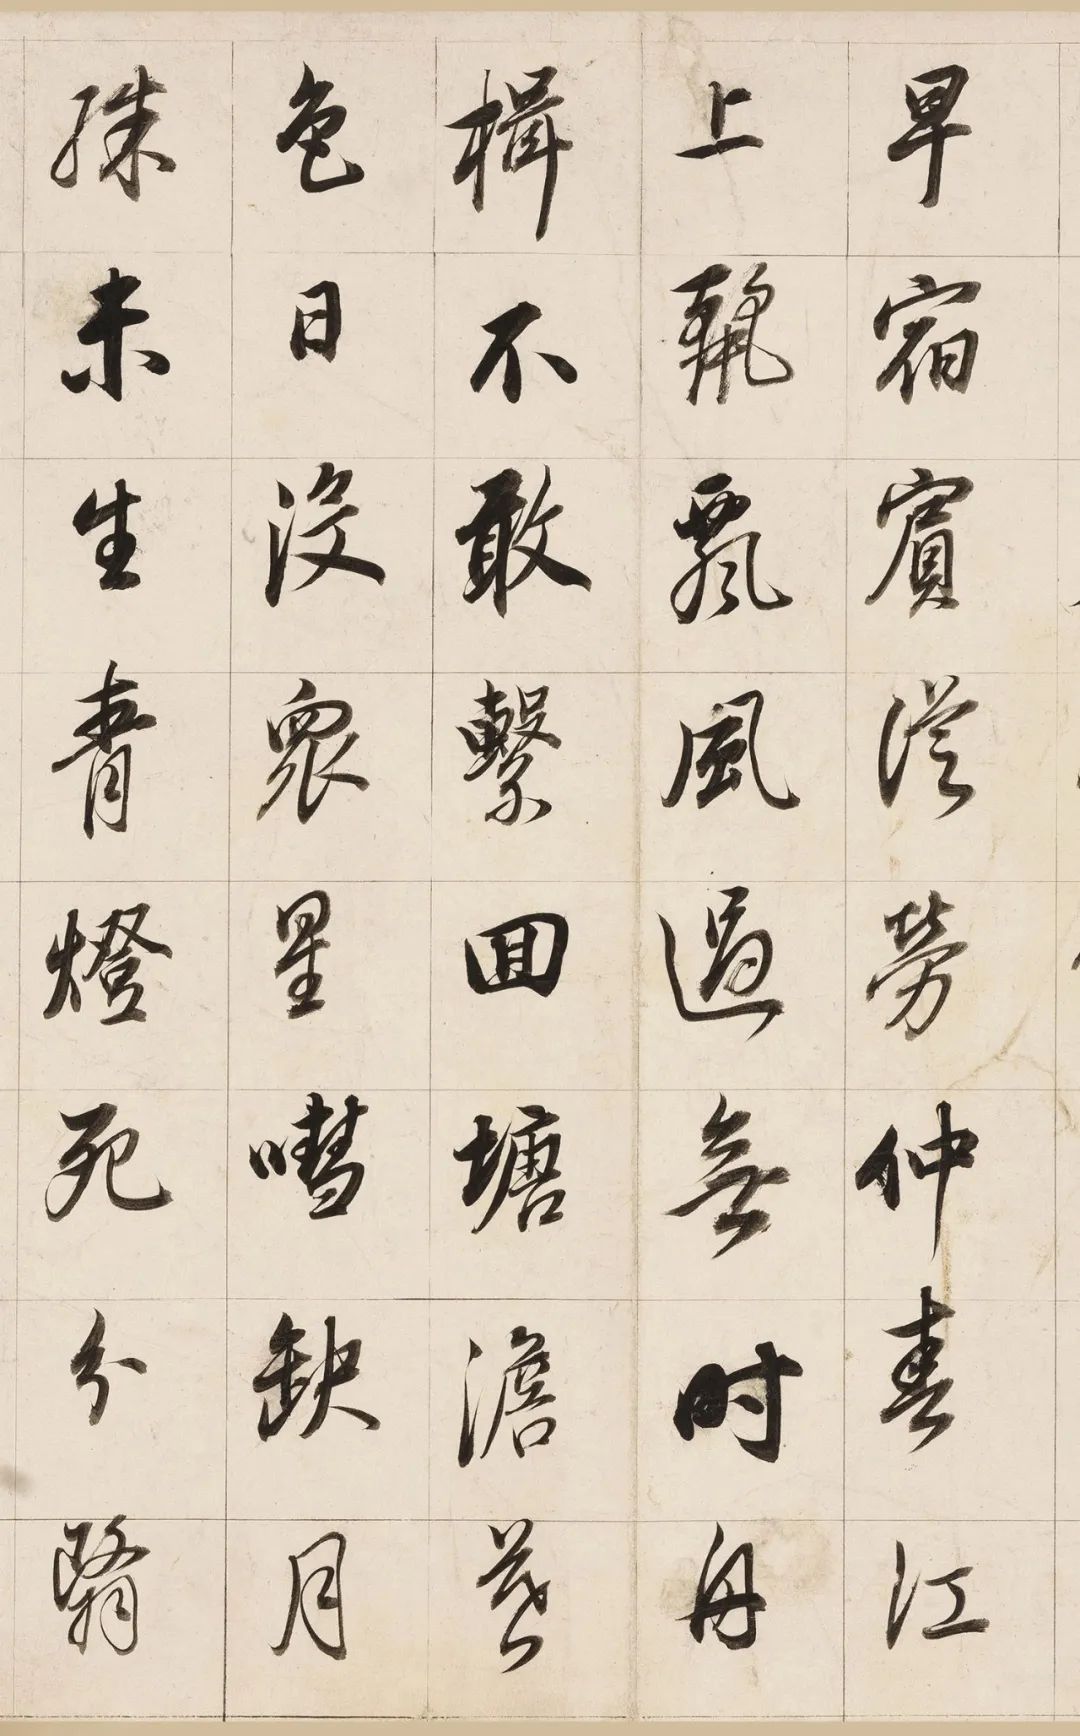 早宿賓從勞仲春江
上麗飄風過無时舟
楫不敢繫囬塘澹暮
色日沒眾星嘒缺月
殊未生青燈死分翳